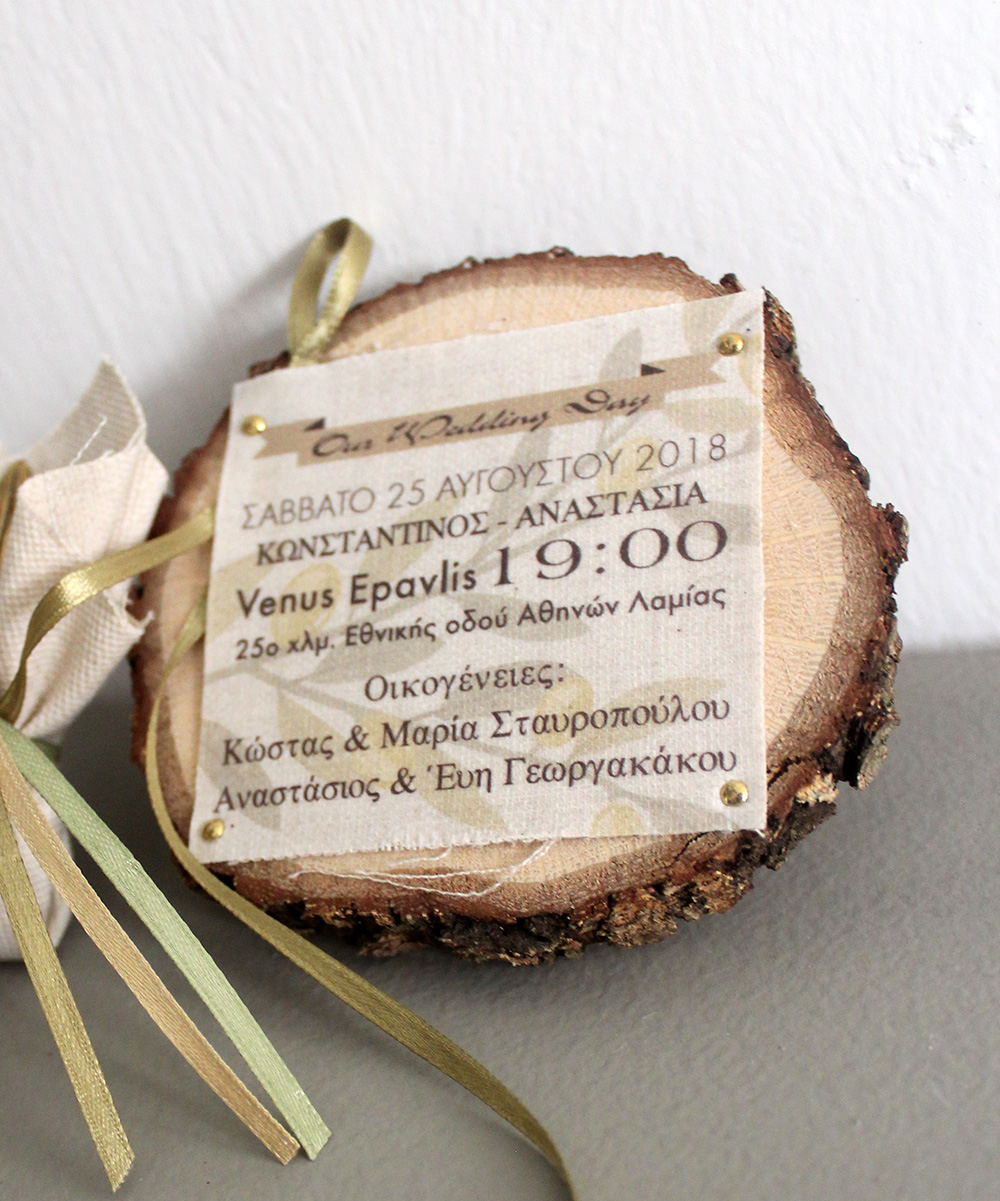 Our Wedding Day
ΣΑΒΒΑΤΟ 25 ΑΥΓΟΥΣΤΟΥ 2018
ΚΩΝΣΤΑΝΤΙΝΟΣ - ΑΝΑΣΤΑΣΙΑ
Venus Epavlis 19:00
25ο χλμ. Εθνικής οδού Αθηνών Λαμίας
Οικογένειες:
Κώστας & Μαρία Σταυροπούλου
Αναστάσιος & Έυη Γεωργακάκου